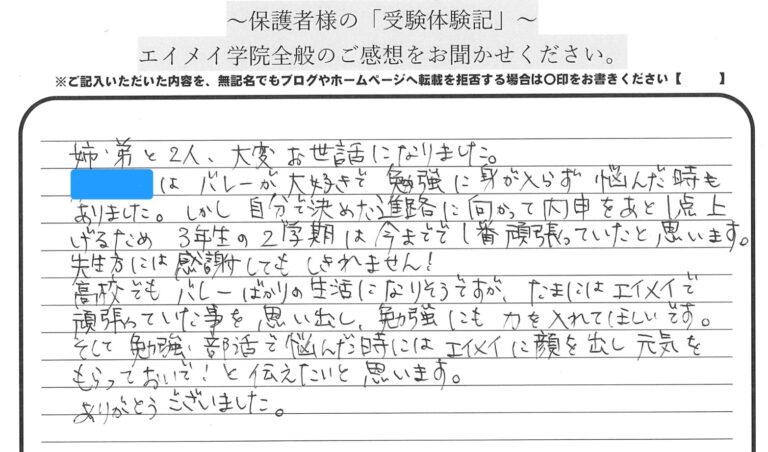 ～保護者様の「受験体験記」～
エイメイ学院全般のご感想をお聞かせください。
※ご記入いただいた内容を、無記名でもブログやホームページへ転載を拒否する場合は〇印をお書きください【　　】
姉・弟と2人、大変お世話になりました。
はバレーが大好きで勉強に身が入らず悩んだ時も
ありました。しかし自分で決めた進路に向かって内申をあと1点上
げるため3年生の2学期は今までで1番頑張っていたと思います。
先生方には感謝してもしきれません!
高校でもバレーばかりの生活になりそうですが、たまにはエイメイで
頑張っていた事を思い出し、勉強にも力を入れてほしいです。
そして勉強、部活で悩んだ時にはエイメイに顔を出し元気を
もらっておいで!と伝えたいと思います。
ありがとうございました。